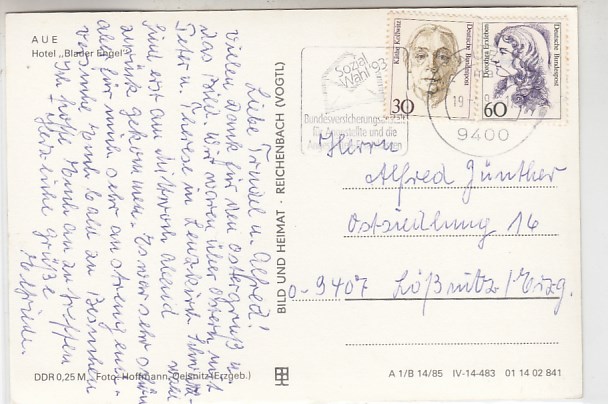 AUE
Hotel „Blauer Engel"
Liebe Trudel u. Alfred!
Vielen Dank für den Ostergruß u.
das Bild. Wir waren über Ostern mit
Peter u. Therese in
Sind erst am Mittwoch Abend
zurück gekommen. Es war sehr schön
aber für mich sehr anstrengend.
Euch bald zu
Ich hoffe Euch an zu treffen
Herzliche Grüße
BILD UND HEIMAT · REICHENBACH (VOGTL)
DDR 0,25 M Foto: Hoffmann, Oelsnitz (Erzgeb.)
Sozial
Wahl '93
Bundesversicherungsanstalt
für Angestellte und die
Käthe Kollwitz
Deutsche Bundespost
30
Dorothea Erxleben
Deutsche Bundespost
60
19
9400
Herrn
Alfred Günther
Ostsiedlung 16
O-9407 Lößnitz/Erzg.
A 1/B 14/85 IV-14-483 01 14 02 841